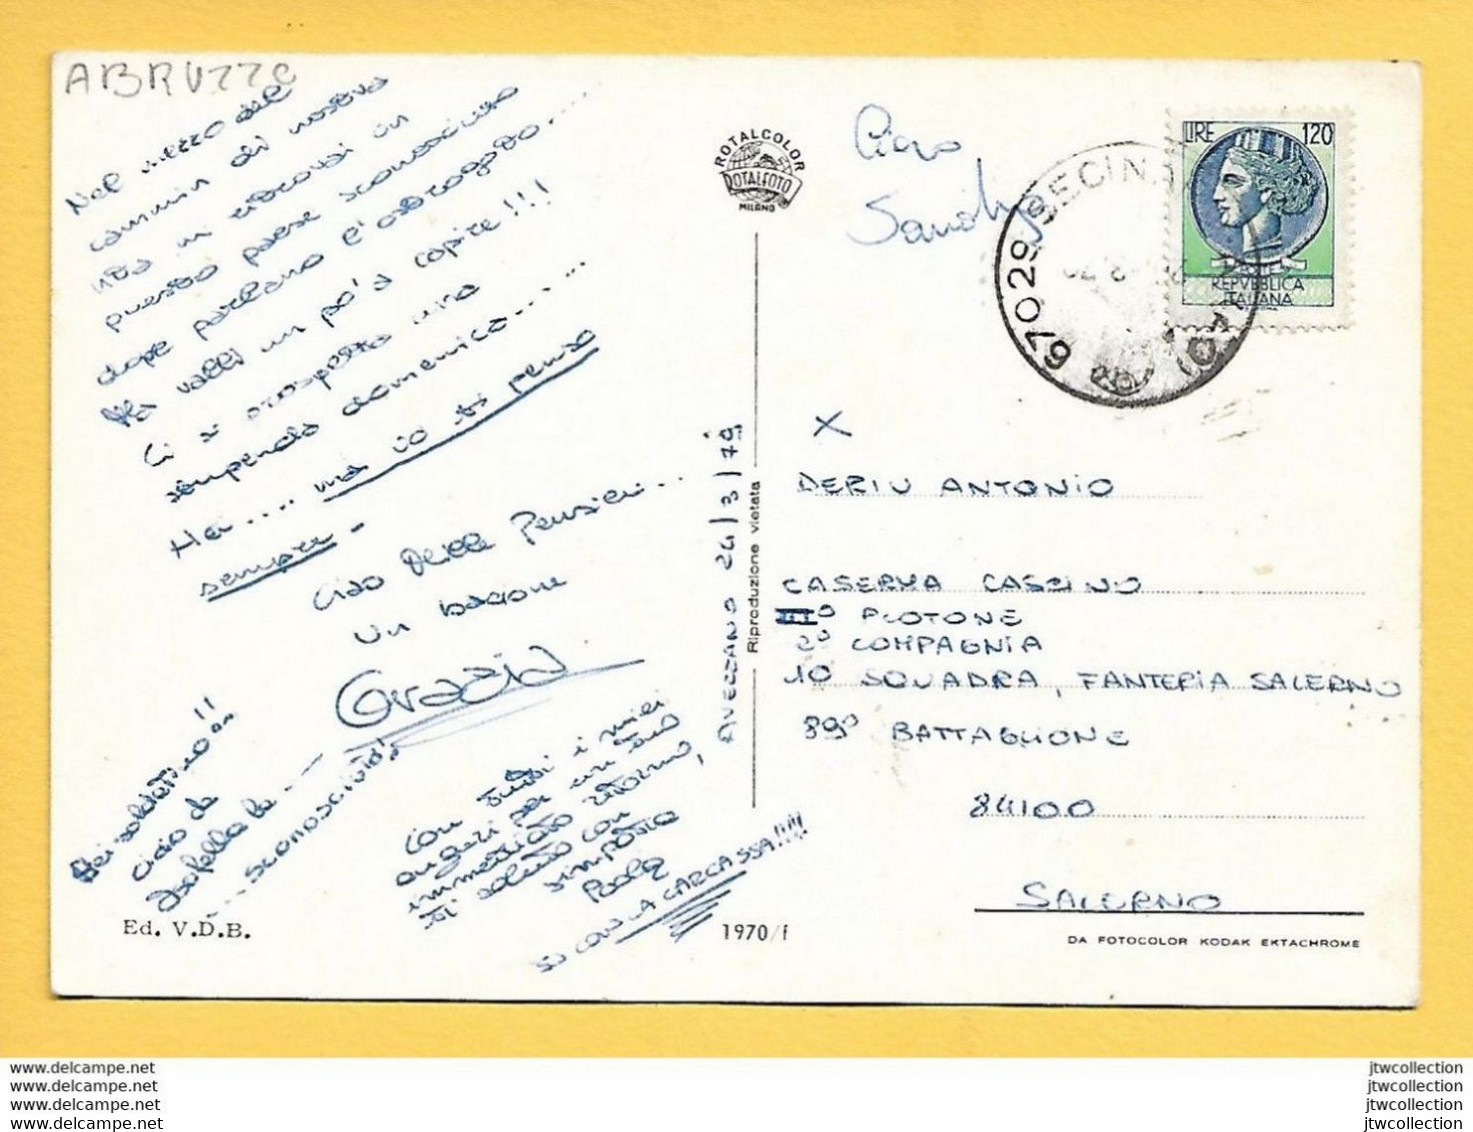 ABRUZZO
Nel mezzo del
cammin di nostra
vita mi ritrovai in
questo paese sconosciuto
dope parlano l'ostrogoto....
Ma valli un pò a capire!!!
Ci si prospetta una
stupenda domenica......
Hei.... ma io ti penso
sempre-
Ciao Delle Pensieri...
Un bacione
Grazia
Hei soldatino!!
ciao da
la...
...sconosciuta!
Con tutti i miei
auguri per un tuo
immediato ritorno,
ti saluto con
simpatia
Paola
SI CON LA CARCASSA!!!!
Ed. V.D.B.
ROTALCOLOR
ROTALFOTO
MILANO
AVEZZANO 24/3/79
Riproduzione vietata
1970/f
Ciao
Sandy
67029 SECIN
LIRE 120
REPVBBLICA
ITALIANA
X
DERIU ANTONIO
CASERMA CASCINO
III° PLOTONE
2° COMPAGNIA
10 SQUADRA, FANTERIA SALERNO
89° BATTAGLIONE
84100
SALERNO
DA FOTOCOLOR KODAK EKTACHROME
www.delcampe.net
www.delcampe.net
www.delcampe.net
www.delcampe.net
jtwcollection
jtwcollection
jtwcollection
jtwcollection